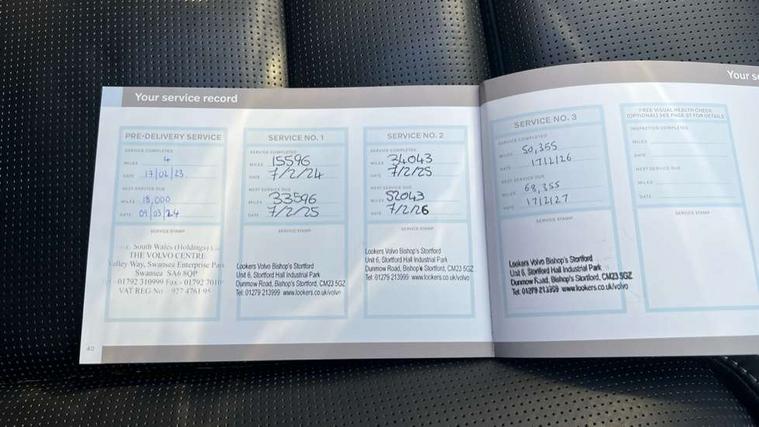 Your service record
Your se
PRE-DELIVERY SERVICE
SERVICE COMPLETED
MILES 4
DATE 17/02/23
NEXT SERVICE DUE
MILES 18,000
DATE 01/03/24
SERVICE STAMP
South Wales (Holdings)
THE VOLVO CENTRE
Valley Way, Swansea Enterprise Park
Swansea SA6 8QP
01792 310999 Fax - 01792
VAT REG No 927 4761 95
SERVICE NO. 1
SERVICE COMPLETED
MILES 15596
DATE 7/2/24
NEXT SERVICE DUE
MILES 33596
DATE 7/2/25
SERVICE STAMP
Lookers Volvo Bishop's Stortford
Unit 6, Stortford Hall Industrial Park
Dunmow Road, Bishop's Stortford, CM23 5GZ
Tel: 01279 213999 www.lookers.co.uk/volvo
SERVICE NO. 2
SERVICE COMPLETED
MILES 34043
DATE 7/2/25
NEXT SERVICE DUE
MILES 52043
DATE 7/2/26
SERVICE STAMP
Lookers Volvo Bishop's Stortford
Unit 6, Stortford Hall Industrial Park
Dunmow Road, Bishop's Stortford, CM23 5GZ
Tel: 01279 213999 www.lookers.co.uk/volvo
SERVICE NO. 3
SERVICE COMPLETED
MILES 50,355
DATE 17/2/26
NEXT SERVICE DUE
MILES 68,355
DATE 17/2/27
SERVICE STAMP
Lookers Volvo Bishop's Stortford
Unit 6, Stortford Hall Industrial Park
Dunmow Road, Bishop's Stortford, CM23 5GZ
Tel: 01279 213999 www.lookers.co.uk/volvo
FREE VISUAL HEALTH CHECK
(OPTIONAL) SEE PAGE 37 FOR DETAILS
INSPECTION COMPLETED
MILES
DATE
NEXT SERVICE DUE
MILES
DATE
SERVICE STAMP
40